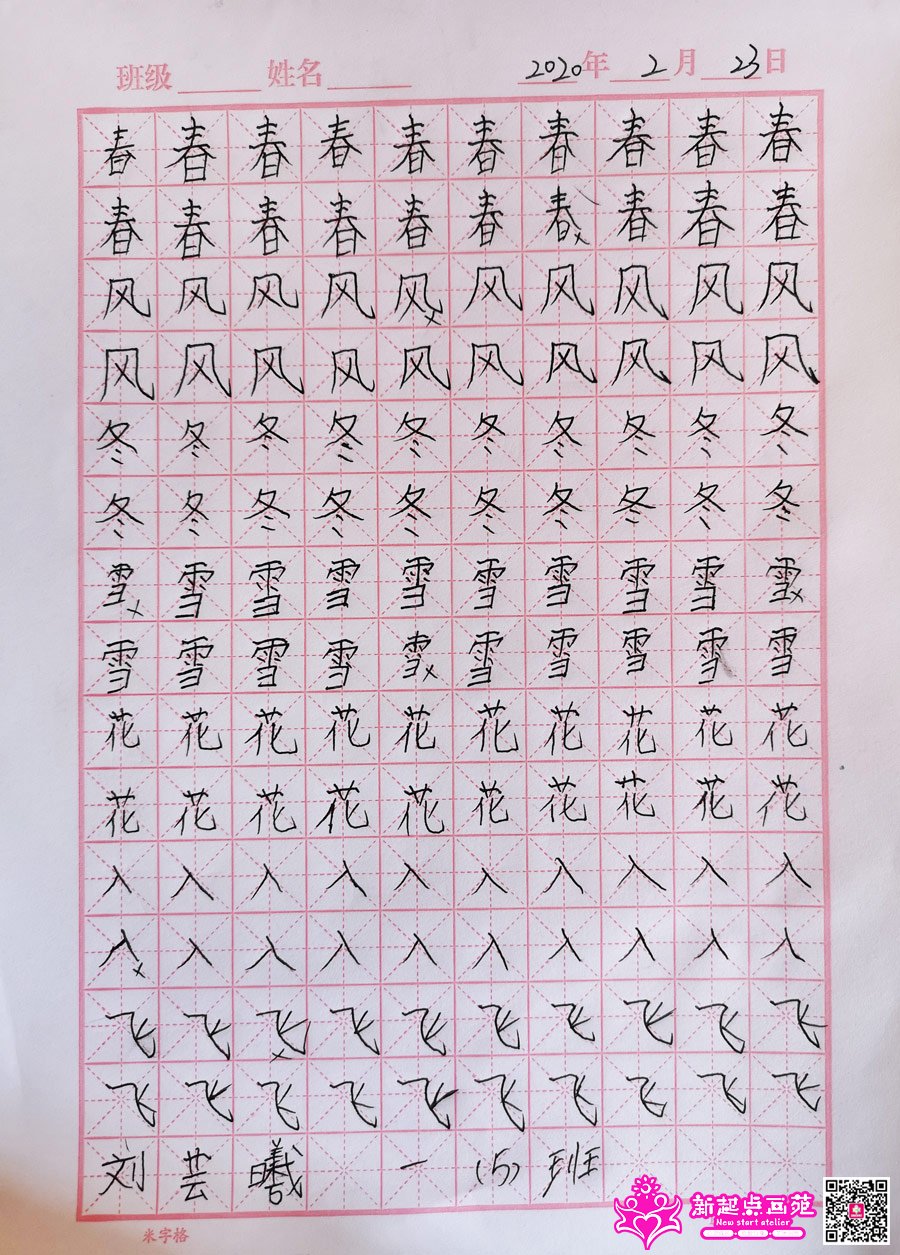 班级 姓名 2020年 2月 23日
春 春 春 春 春 春 春 春 春 春
春 春 春 春 春 春 春 春 春 春
风 风 风 风 风 风 风 风 风 风
风 风 风 风 风 风 风 风 风 风
冬 冬 冬 冬 冬 冬 冬 冬 冬 冬
冬 冬 冬 冬 冬 冬 冬 冬 冬 冬
雪 雪 雪 雪 雪 雪 雪 雪 雪 雪
雪 雪 雪 雪 雪 雪 雪 雪 雪 雪
花 花 花 花 花 花 花 花 花 花
花 花 花 花 花 花 花 花 花 花
入 入 入 入 入 入 入 入 入 入
入 入 入 入 入 入 入 入 入 入
飞 飞 飞 飞 飞 飞 飞 飞 飞 飞
飞 飞 飞 飞 飞 飞 飞 飞 飞 飞
刘 芸 曦 一 (5) 班
米字格
新起点画苑
New start atelier